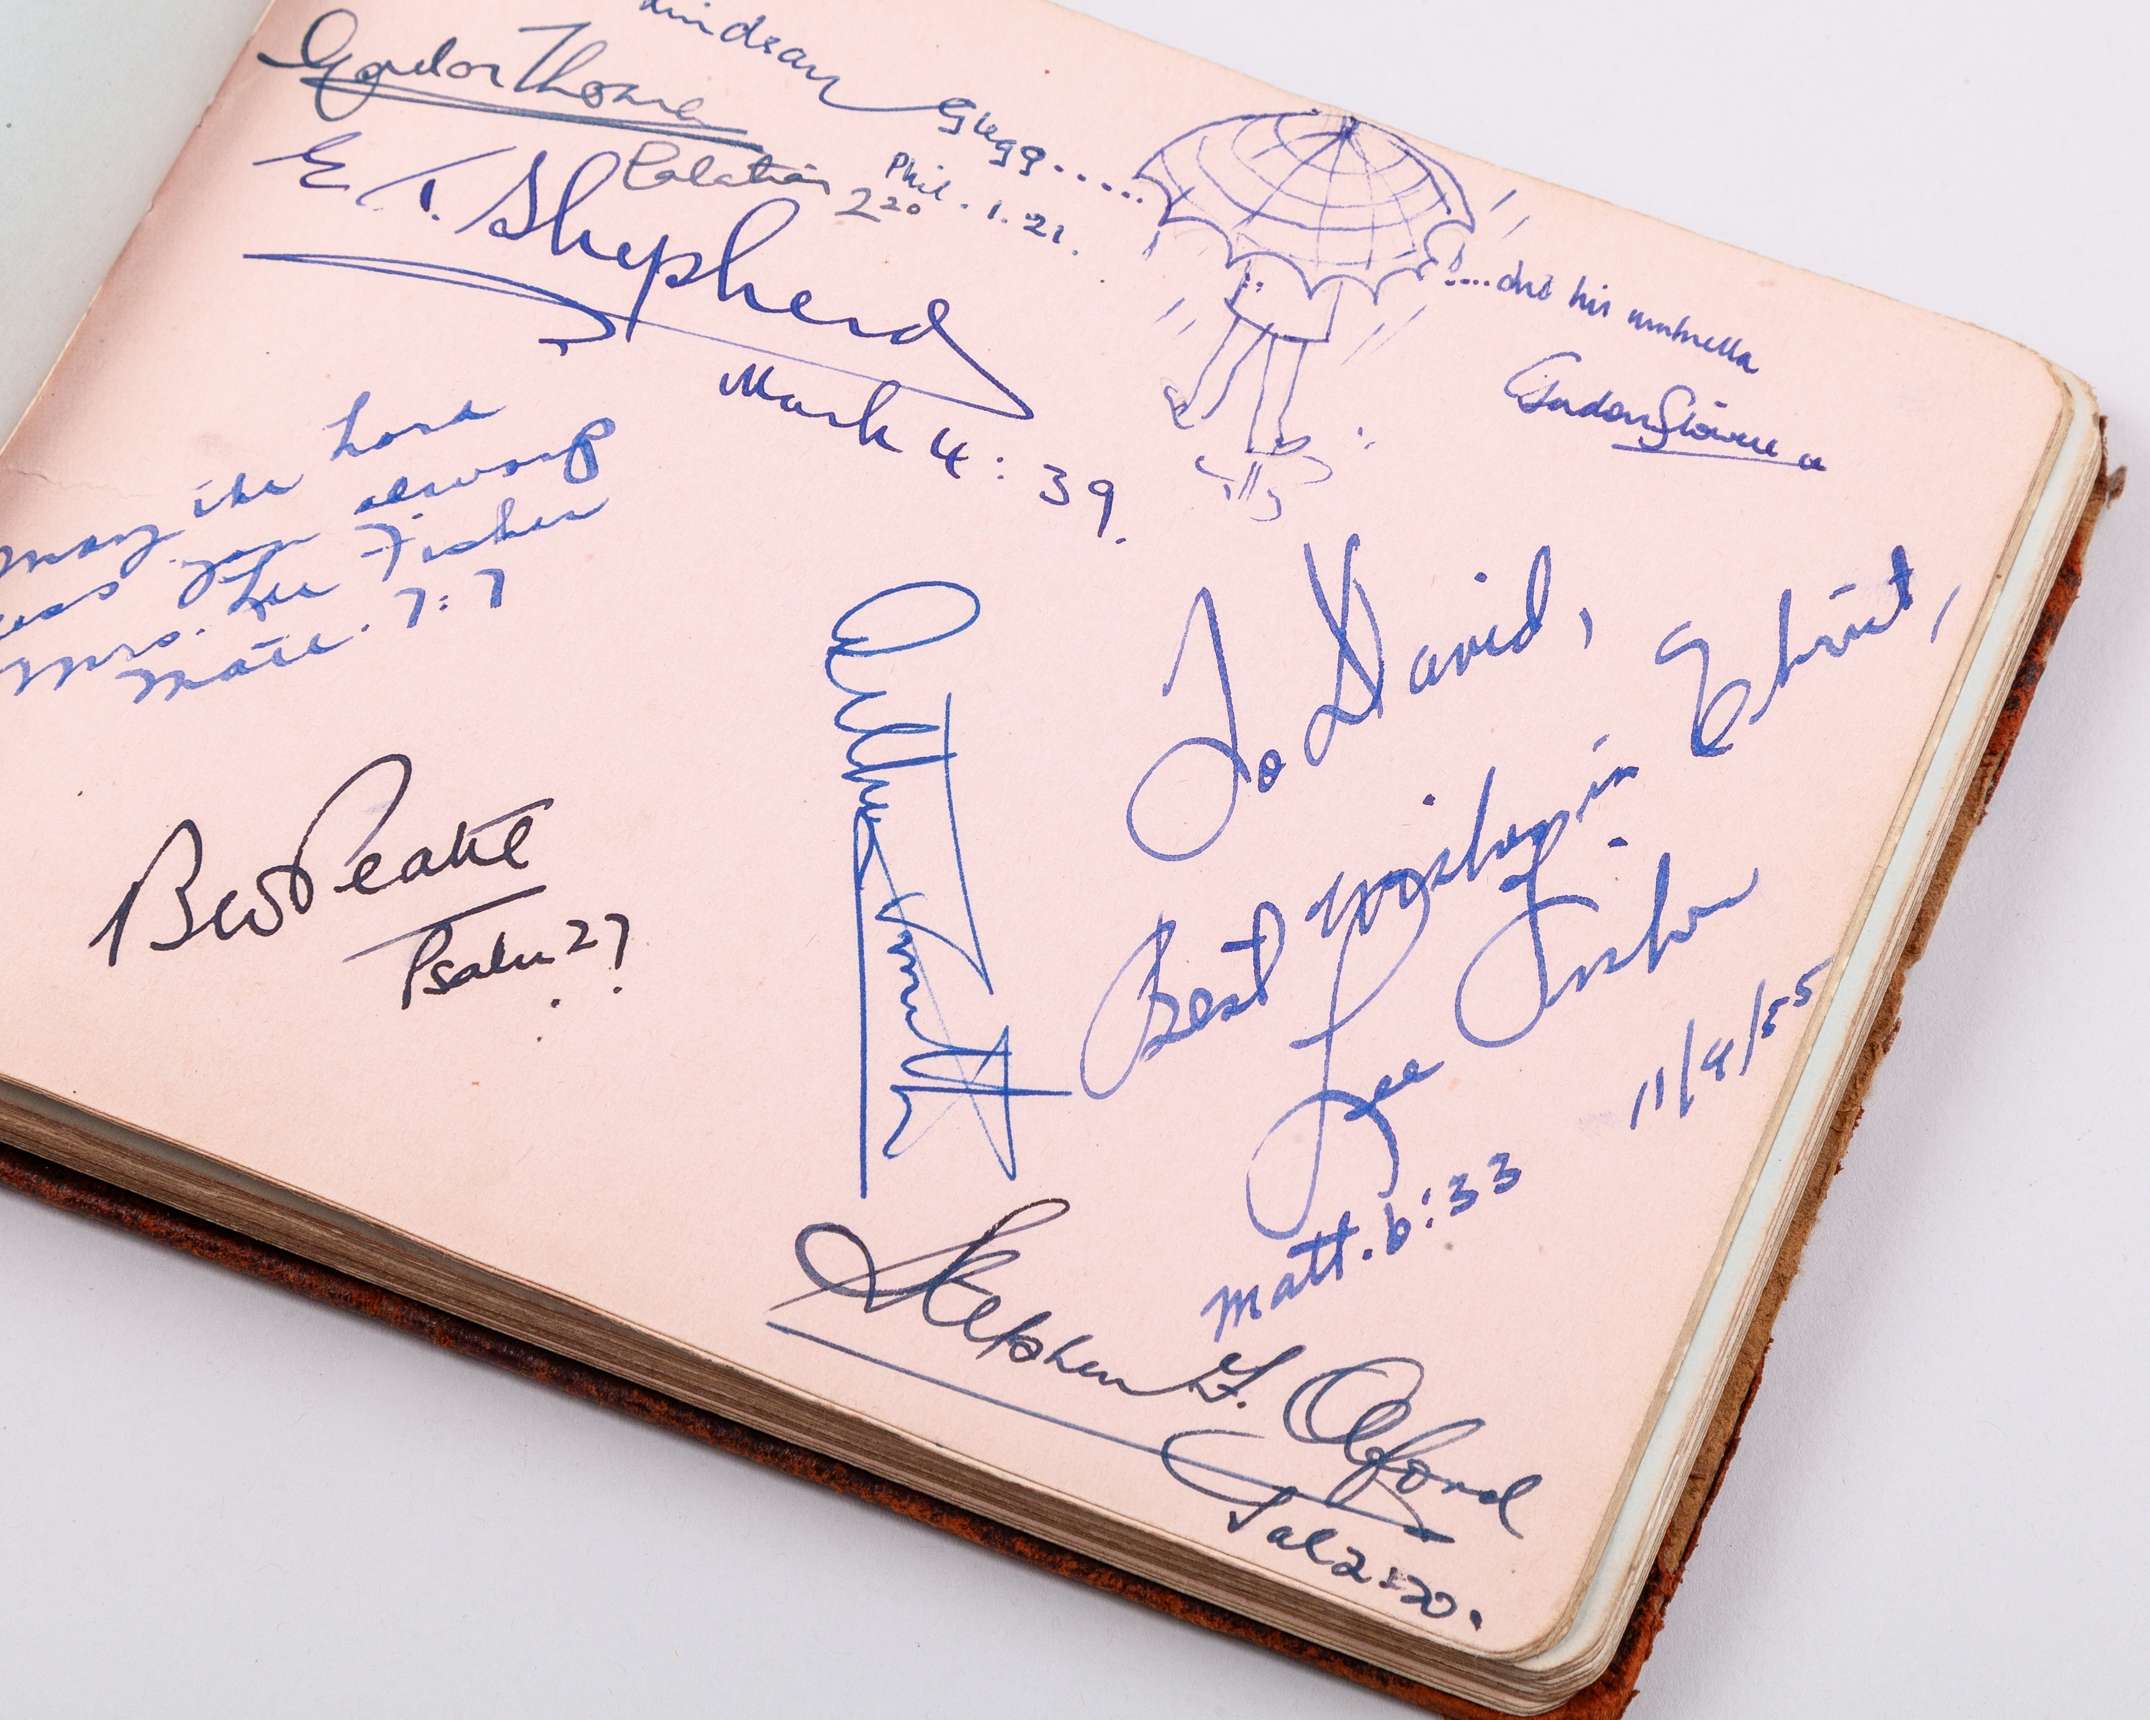 Lindsay Glegg.....
Gordon Thomas
Galatians 2 20
Phil. 1. 21.
E. T. Shepherd
Mark 4:39.
....and his umbrella
May the Lord
you always
Mrs. Lee Fisher
Matt. 7:7
Psalm 27.
To David,
Best Wishes in Christ,
Lee Fisher
11/9/55
Matt. 6:33
Stephen F. Olford
Gal 2:20.